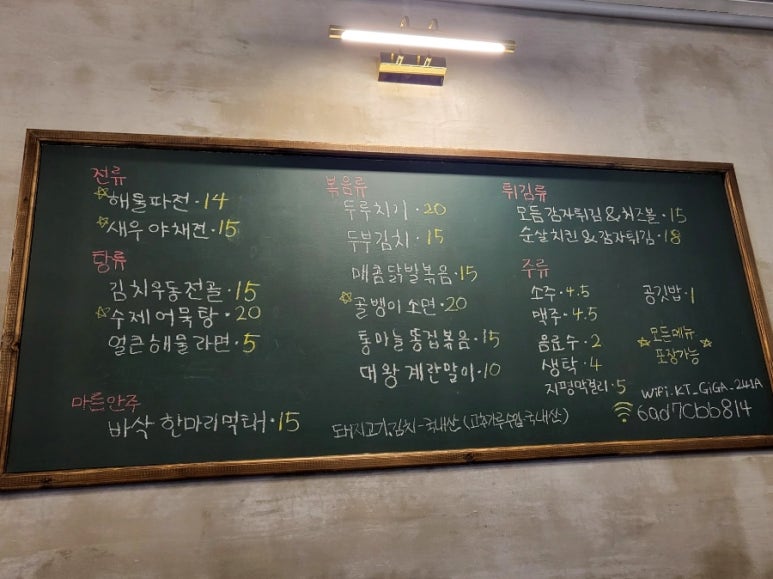 전류
☆해물파전·14
☆새우야채전·15
탕류
김치우동전골·15
☆수제어묵탕·20
얼큰해물라면·5
마른안주
바삭 한마리먹태·15
볶음류
두루치기·20
두부김치·15
매콤닭발볶음·15
☆골뱅이소면·20
통마늘똥집볶음·15
대왕계란말이·10
돼지고기,김치-국내산(고추가루수입,국내산)
튀김류
모듬감자튀김&치즈볼·15
순살치킨&감자튀김·18
주류
소주·4.5
맥주·4.5
음료수·2
생탁·4
지평막걸리·5
공깃밥·1
☆모든메뉴☆
포장가능
WiFi.KT_GiGA_241A
6ad7cbb814